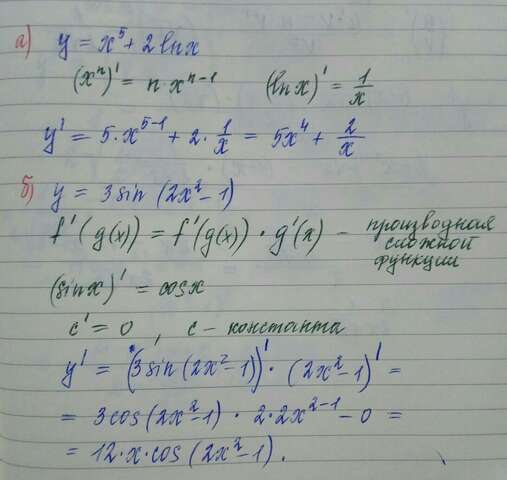 а) y = x⁵ + 2 ln x
(xⁿ)' = n · xⁿ⁻¹ (ln x)' = 1/x
y' = 5 · x⁵⁻¹ + 2 · 1/x = 5x⁴ + 2/x
б) y = 3 sin (2x² − 1)
f'(g(x)) = f'(g(x)) · g'(x) – производная
сложной
функции
(sin x)' = cos x
c' = 0 , c – константа
y' = (3 sin (2x² − 1))' · (2x² − 1)' =
= 3 cos (2x² − 1) · 2 · 2x²⁻¹ − 0 =
= 12 · x · cos (2x² − 1).